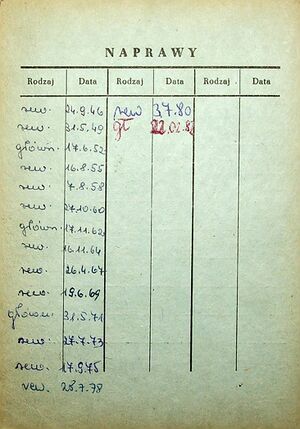 NAPRAWY
Rodzaj Data Rodzaj Data Rodzaj Data
rew. 24.9.46 rew 3.7.80
rew. 31.5.49 gł 22.02.
główn. 17.6.52
rew. 16.8.55
rew. 7.8.58
rew. 27.10.60
główn. 17.11.62
rew. 16.11.64
rew. 26.4.67
rew. 19.6.69
główn. 31.5.71
rew. 27.7.73
rew. 17.9.75
rew. 28.7.78